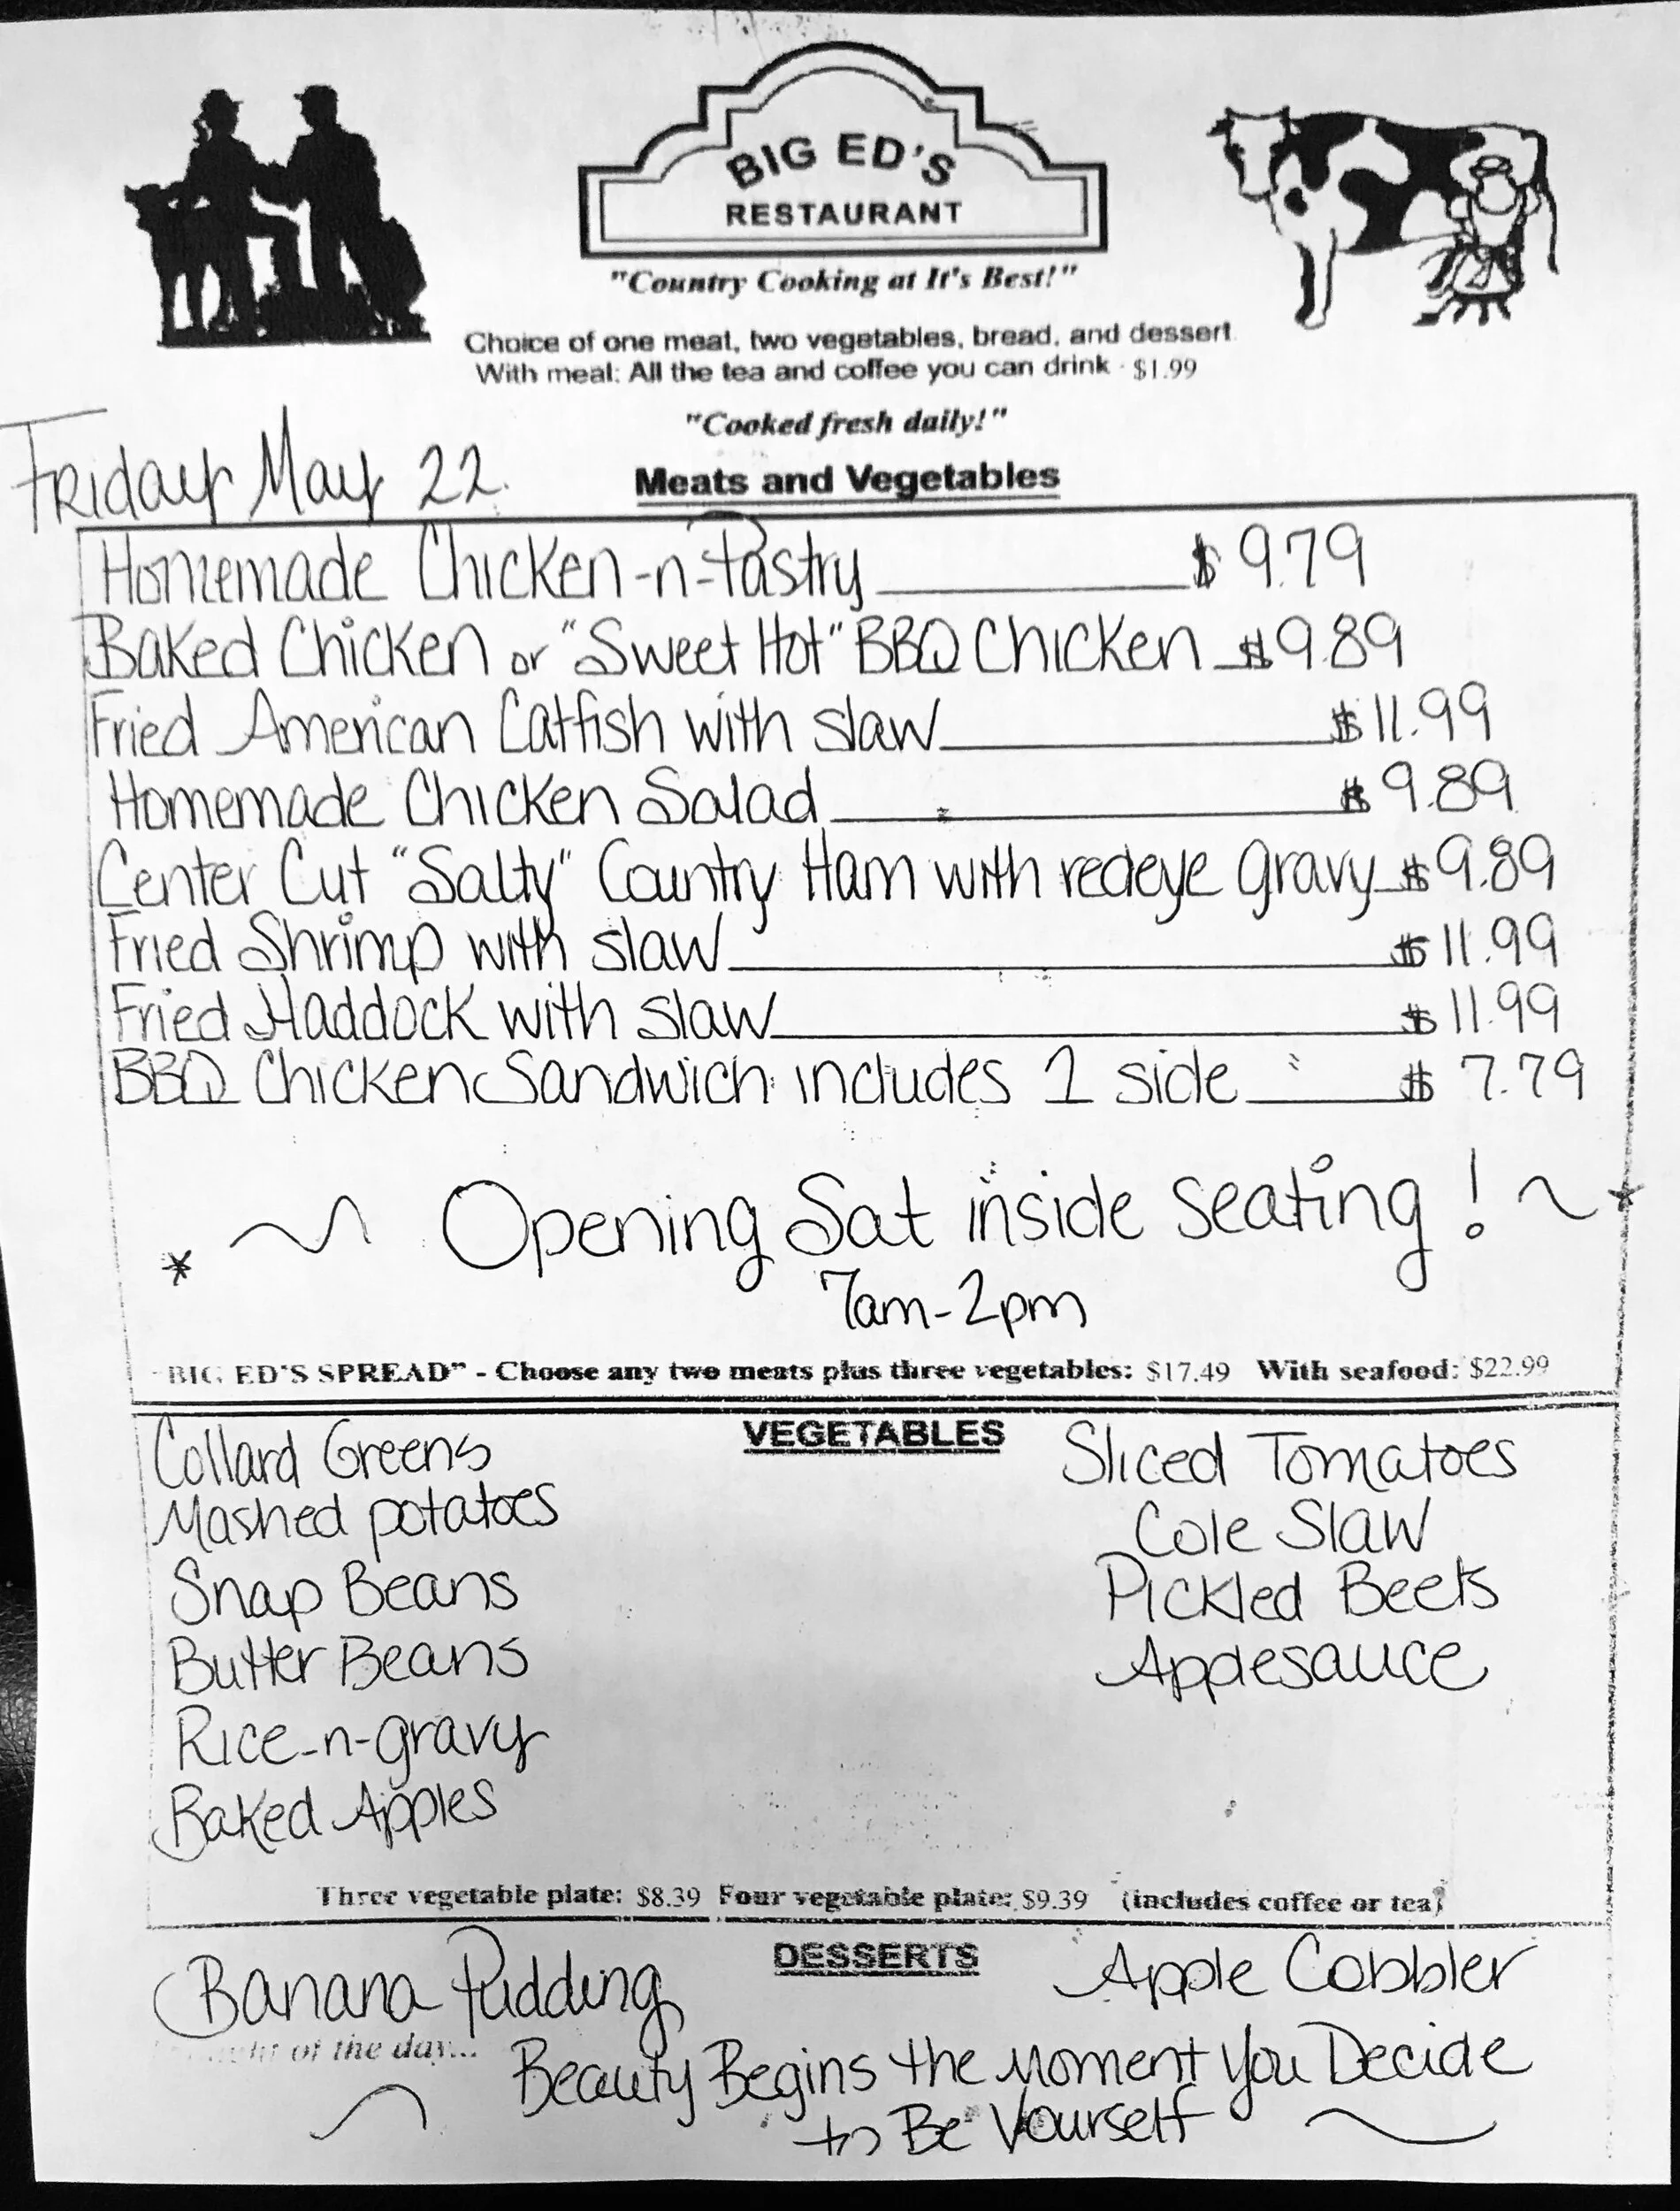 BIG ED'S
RESTAURANT
"Country Cooking at It's Best!"
Choice of one meat, two vegetables, bread, and dessert
With meal: All the tea and coffee you can drink - $1.99
"Cooked fresh daily!"
Friday May 22.
Meats and Vegetables
Homemade Chicken-n-Pastry $ 9.79
Baked Chicken or "Sweet Hot" BBQ Chicken $9.89
Fried American Catfish with slaw $11.99
Homemade Chicken Salad $9.89
Center Cut "Salty" Country Ham with redeye gravy $9.89
Fried Shrimp with slaw $11.99
Fried Haddock with slaw $11.99
BBQ Chicken Sandwich includes 1 side $ 7.79
* ~ Opening Sat inside seating! ~ *
7am-2pm
"BIG ED'S SPREAD" - Choose any two meats plus three vegetables: $17.49 With seafood: $22.99
VEGETABLES
Collard Greens
Mashed potatoes
Snap Beans
Butter Beans
Rice-n-gravy
Baked Apples
Sliced Tomatoes
Cole Slaw
Pickled Beets
Applesauce
Three vegetable plate: $8.39 Four vegetable plate: $9.39 (includes coffee or tea)
DESSERTS
Banana Pudding
Apple Cobbler
of the day...
Beauty Begins the Moment You Decide
to Be Yourself